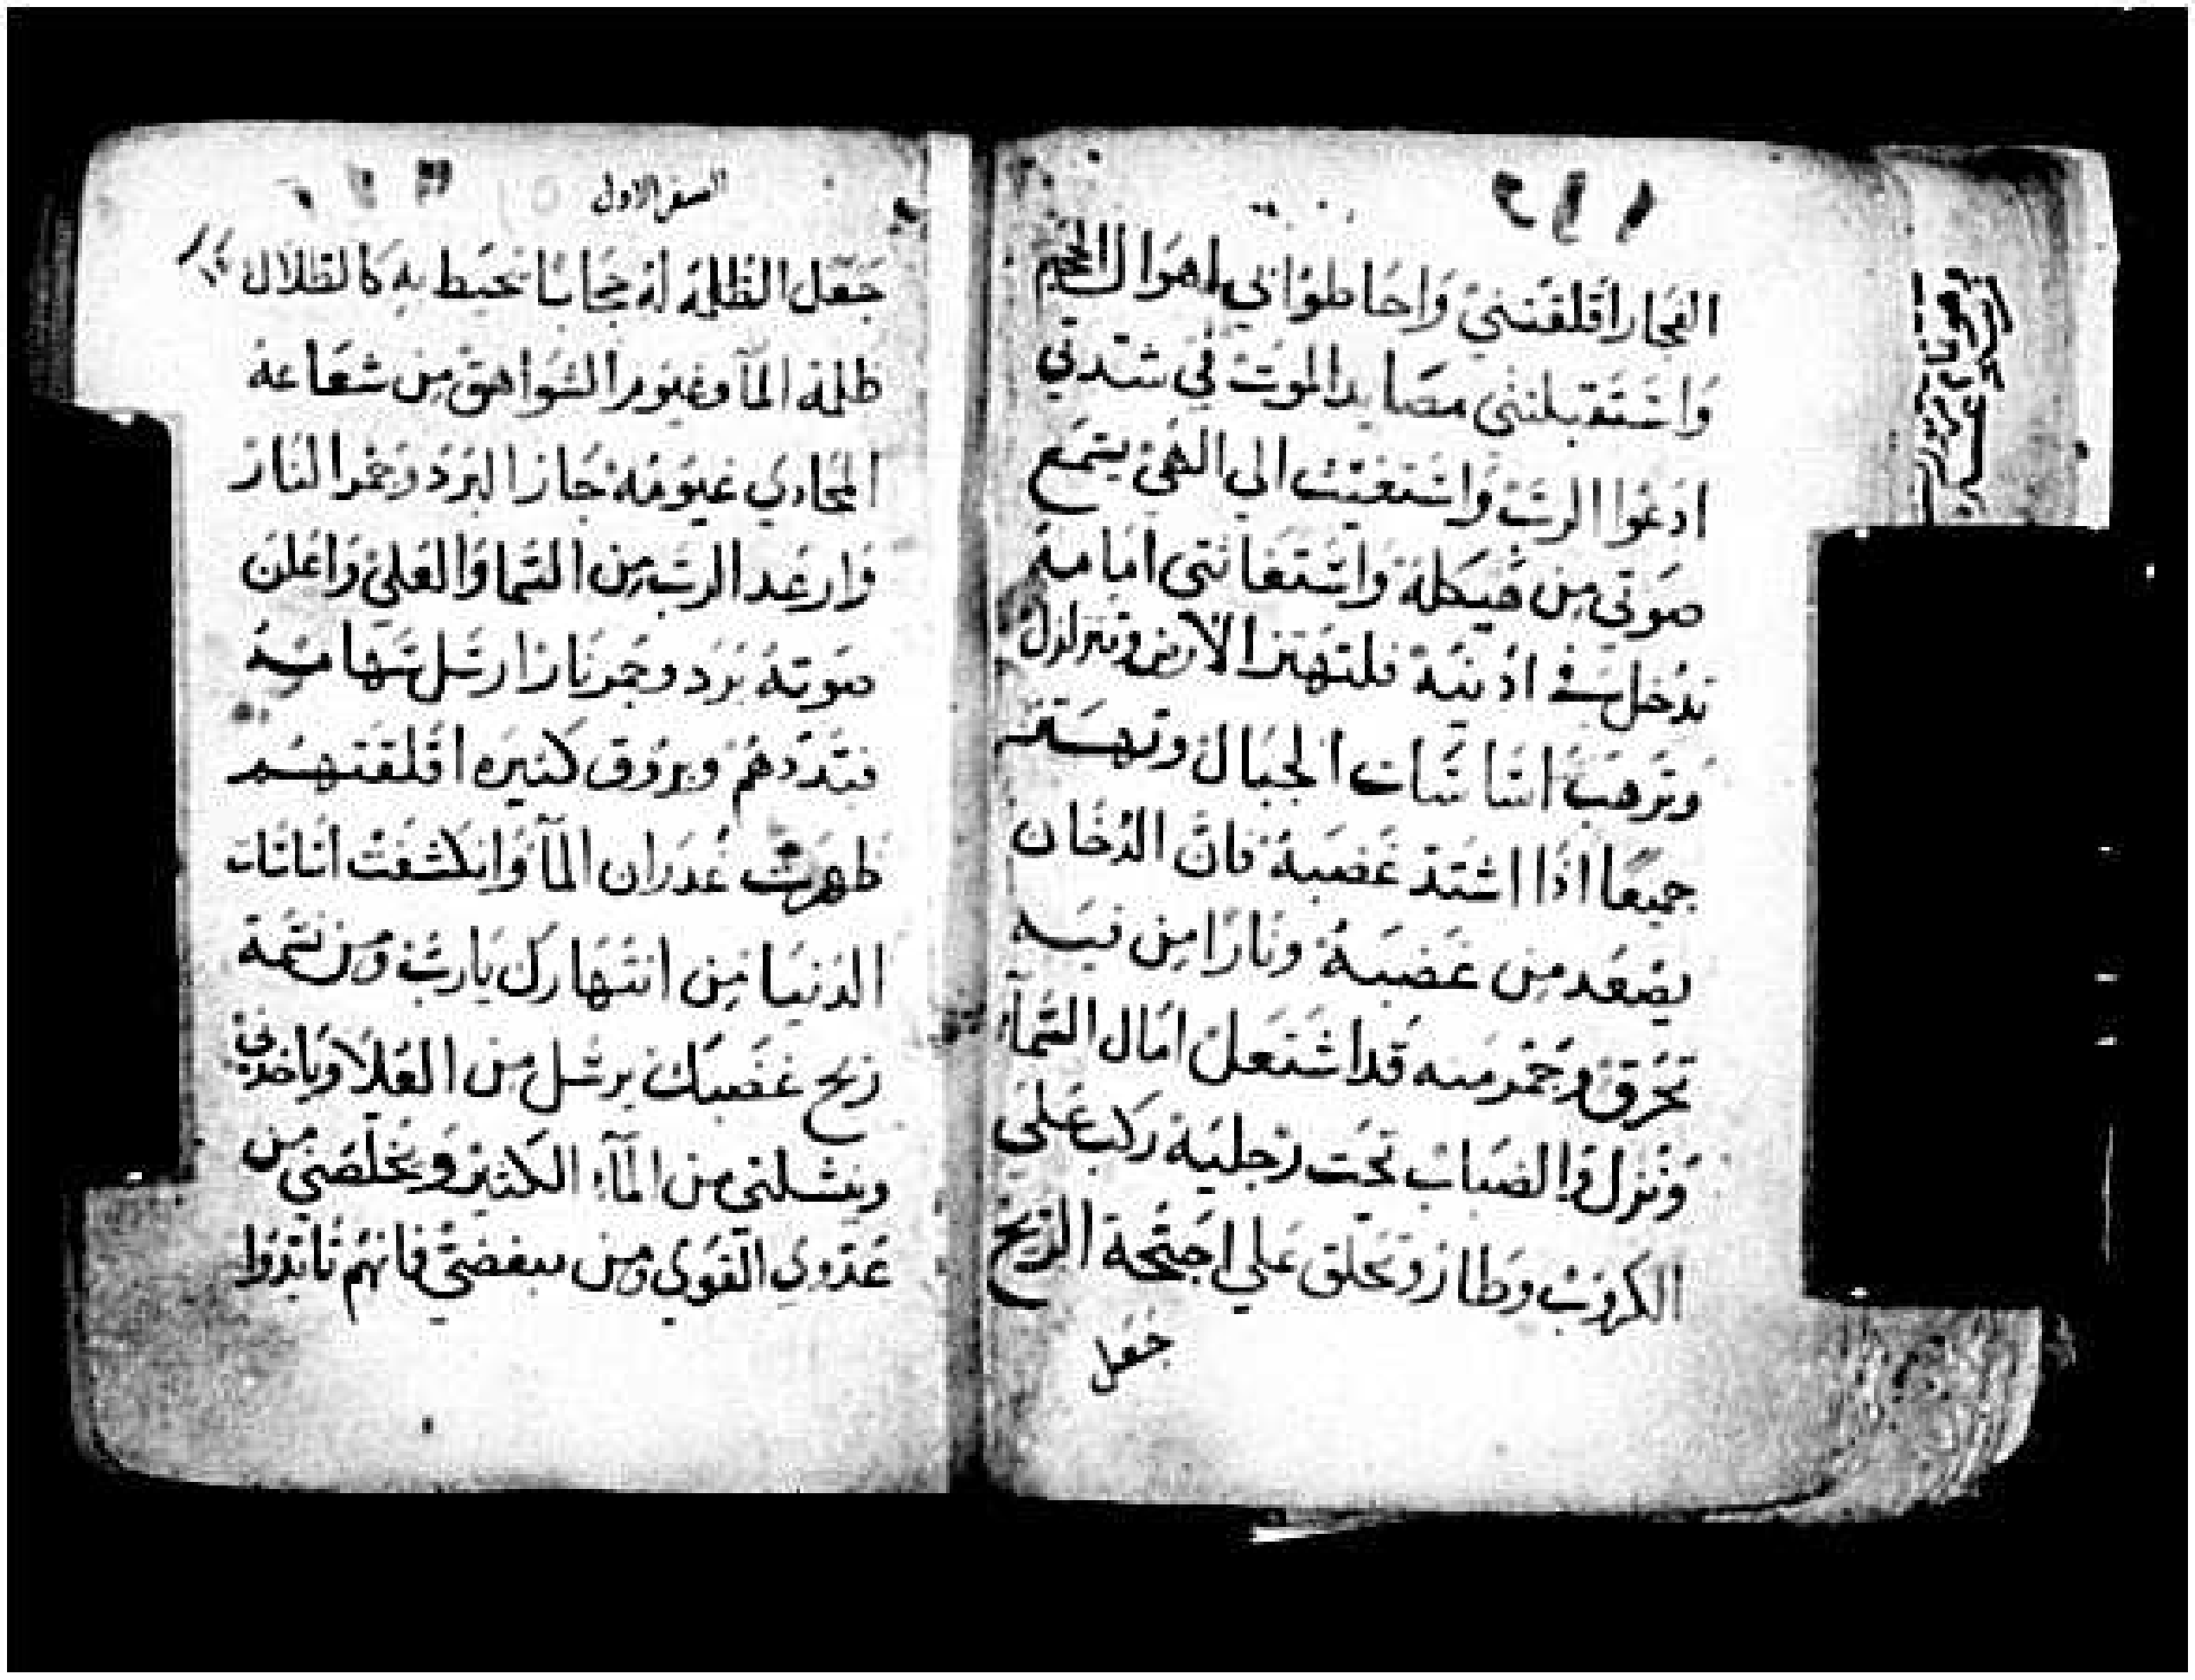 الفجار اقلقتني وَاحَاطوُا بي اهوَال الجحيم
وَاسَتَقبلتني مصَايد الموت في شدتي
ادعوا الربَ وَاستغيث الي الهي يسمع
صوتي من هَيكله وَاسَتغاثتي امَامهُ
تدخل في اذنيه فلتهتز الارض وتتزلزل
وترهبَ اسَاسَات الجبال وتهتز
جميعًا اذا اشتد غضبهُ فان الدخان
يصعد من غضبهُ ونارًا من فيه
تحرق وجمر منه قد اشتعل امال السَمآ
وَنزل وَالضباب تحت رجليه ركب علي
الكروب وطار وتحلق علي اجنحة الريح
جعل
السفر الاول
جَعَل الظلمه له حجابا تحيط به كالظلال
ظلمة المآ وغيوم الشواهق من شعاعه
المحادي غيومه جاز البرد وجمر النار
وَارعد الرب من السَما وَالعلي وَاعلن
صوته برد وجمر نار ارسَل سَهامهُ
فبَددهم وبروق كثيره اقلقتهم
ظهرت غدران المآ وَانكشفت اسَاسَات
الدنيا من انتهارك يارب ومن نسمة
ريح غضبك يرسَل من العلا وياخدني
وينشلني من المآء الكثير وَيخلصني من
عدوي القوي ومن مبغضي فانهم تايدوا